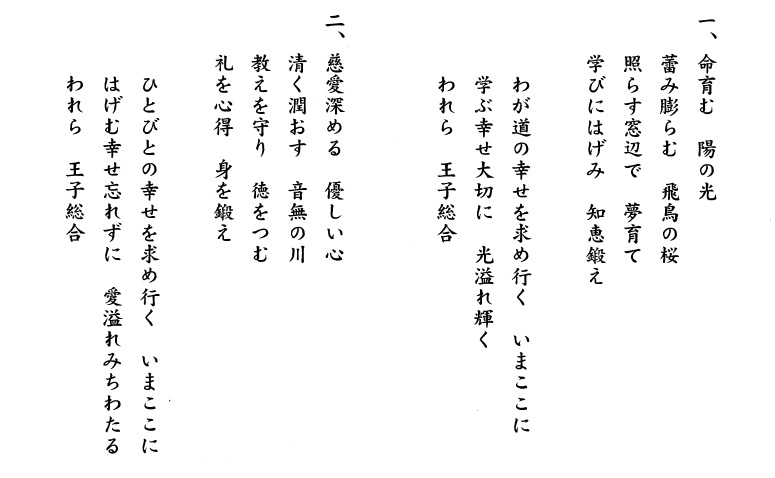 一、命育む　陽の光
蕾み膨らむ　飛鳥の桜
照らす窓辺で　夢育て
学びにはげみ　知恵鍛え
わが道の幸せを求め行く　いまここに
学ぶ幸せ大切に　光溢れ輝く
われら　王子総合
二、慈愛深める　優しい心
清く潤おす　音無の川
教えを守り　徳をつむ
礼を心得　身を鍛え
ひとびとの幸せを求め行く　いまここに
はげむ幸せ忘れずに　愛溢れみちわたる
われら　王子総合